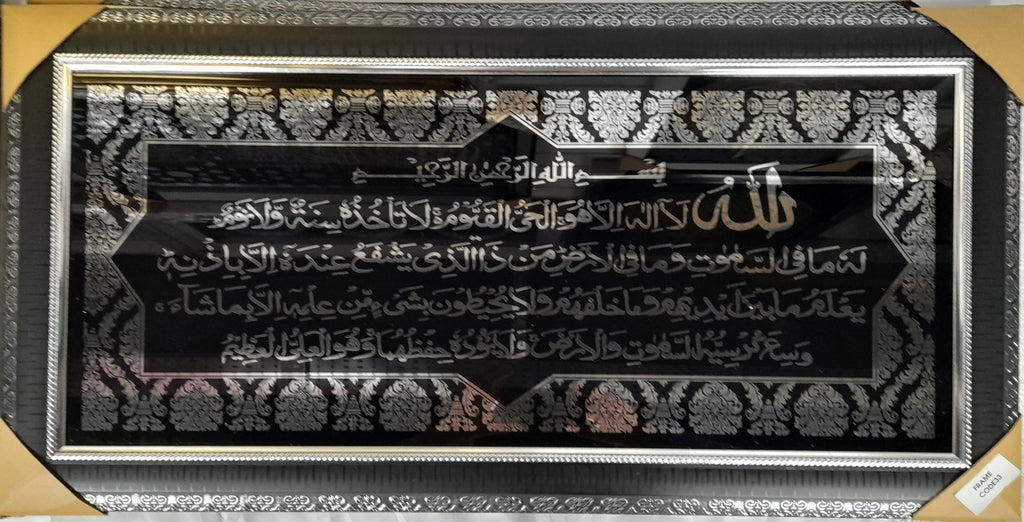 بِسْمِ اللهِ الرَّحْمٰنِ الرَّحِيْمِ
اَللهُ لَآ اِلٰهَ اِلَّا هُوَ اَلْحَيُّ الْقَيُّوْمُ لَا تَأْخُذُهٗ سِنَةٌ وَّلَا نَوْمٌ
لَهٗ مَا فِي السَّمٰوٰتِ وَمَا فِي الْاَرْضِ مَنْ ذَا الَّذِيْ يَشْفَعُ عِنْدَهٗٓ اِلَّا بِاِذْنِهٖ
يَعْلَمُ مَا بَيْنَ اَيْدِيْهِمْ وَمَا خَلْفَهُمْ وَلَا يُحِيْطُوْنَ بِشَيْءٍ مِّنْ عِلْمِهٖٓ اِلَّا بِمَا شَآءَ
وَسِعَ كُرْسِيُّهُ السَّمٰوٰتِ وَالْاَرْضَ وَلَا يَئُوْدُهٗ حِفْظُهُمَا وَهُوَ الْعَلِيُّ الْعَظِيْمُ
FRAME
CODE33